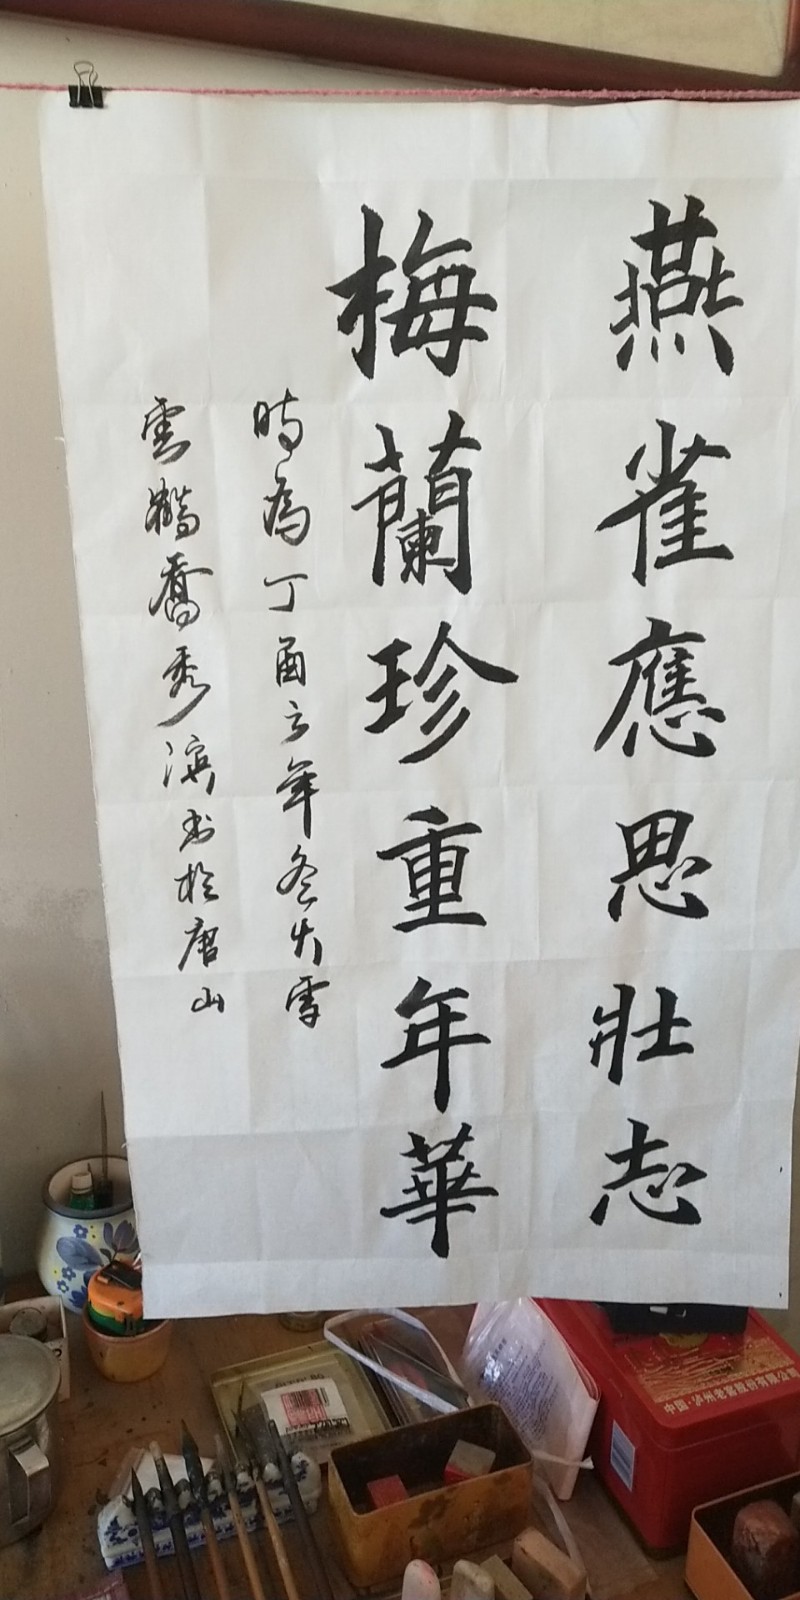 燕雀應思壯志
梅蘭珍重年華
時為丁酉之年冬大雪
雲鶴喬秀濱书於唐山
中国·泸州老窖股份有限公司